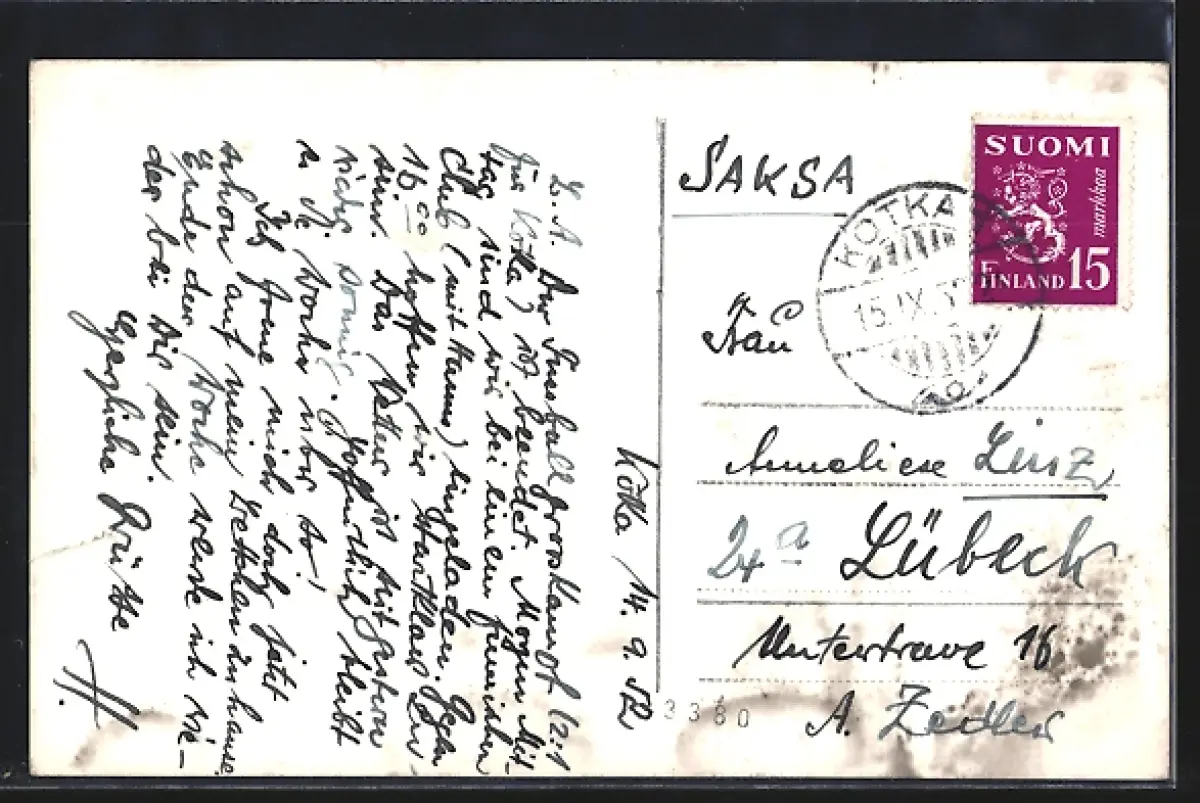 L. A. Der Fussballgrosskampf (2:1
für Kotka) ist beendet. Morgen Mit-
tag sind wir bei einem finnischen
Club (mit Hanns) eingeladen. Gegen
16 00 hoffen wir startklar zu
sein. Das Wetter ist seit gestern
nicht sonnig. Hoffentlich bleibt
die Woche über so!
Ich freue mich doch jetzt
schon auf mein zuhause.
Ende der Woche werde ich wie-
der bei Dir sein.
Herzliche Grüsse
H.
Kotka 14. 9. 52
SAKSA
SUOMI
markkaa
FINLAND 15
KOTKA
15. IX. 5
Frau
Anneliese Linz
24a Lübeck
Untertrave 16
A. Zedler
3380